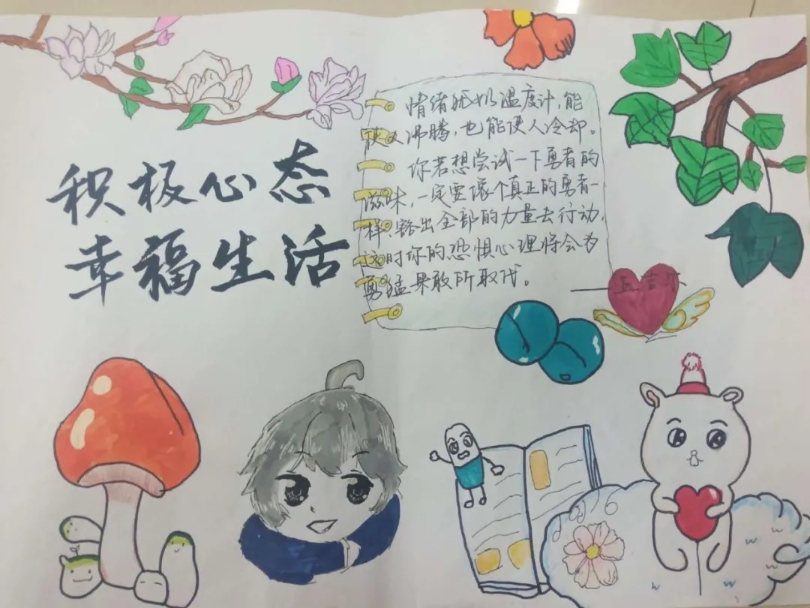 积极心态
幸福生活
情绪好如温度计,能
使人沸腾,也能使人冷却。
你若想尝试一下勇者的
滋味,一定要像个真正的勇者一
样,豁出全部的力量去行动,
这时你的恐惧心理将会为
勇猛果敢所取代。